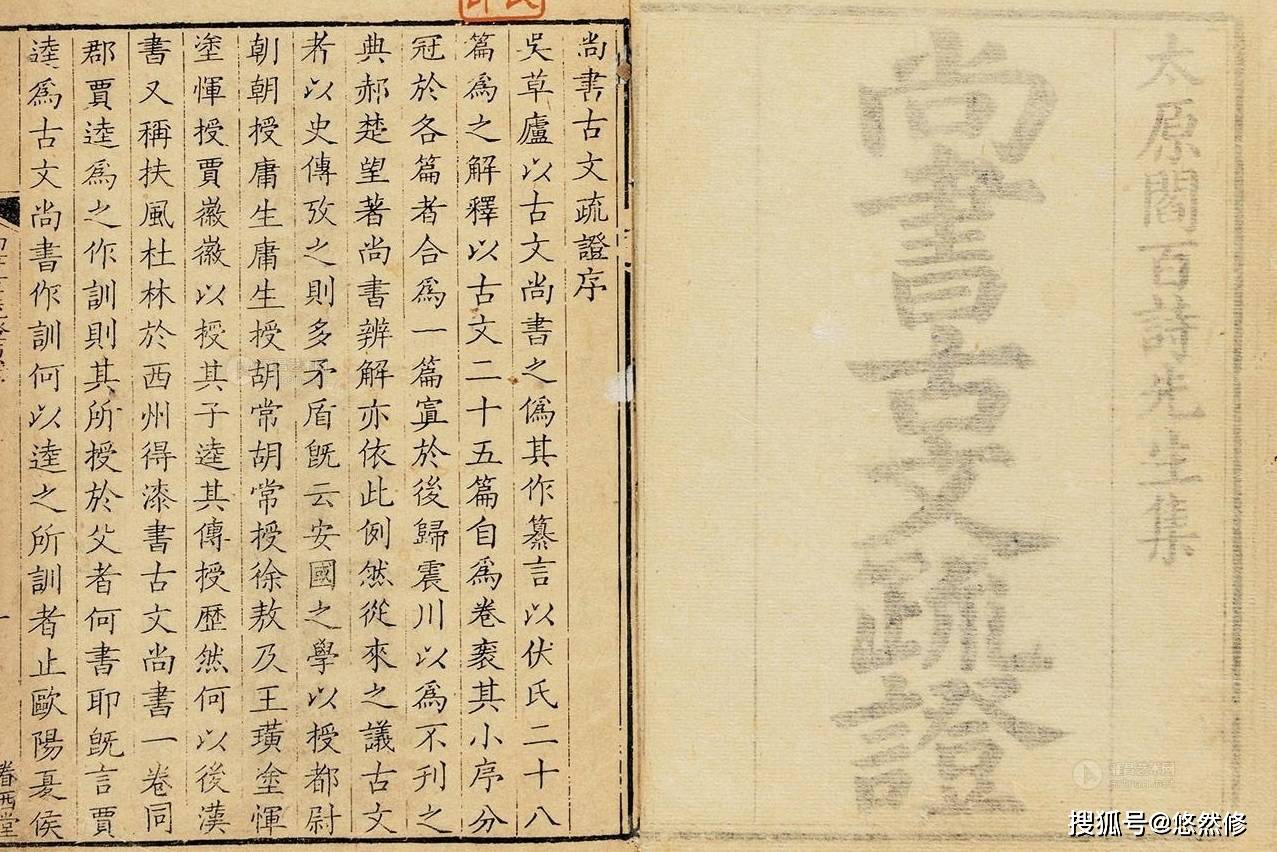 太原閻百詩先生集
尚書古文疏證
尚書古文疏證序
吳草廬以古文尚書之僞其作纂言以伏氏二十八
篇爲之解釋以古文二十五篇自爲卷袠其小序分
冠於各篇者合爲一篇寘於後歸震川以爲不刊之
典郝楚望著尚書辨解亦依此例然從來之議古文
者以史傳攷之則多矛盾旣云安國之學以授都尉
朝朝授庸生庸生授胡常胡常授徐敖及王璜塗惲
塗惲授賈徽徽以授其子逵其傳授歷然何以後漢
書又稱扶風杜林於西州得漆書古文尚書一卷同
郡賈逵爲之作訓則其所授於父者何書耶旣言賈
逵爲古文尚書作訓何以逵之所訓者止歐陽夏侯
一
眷西堂
搜狐号@悠然修